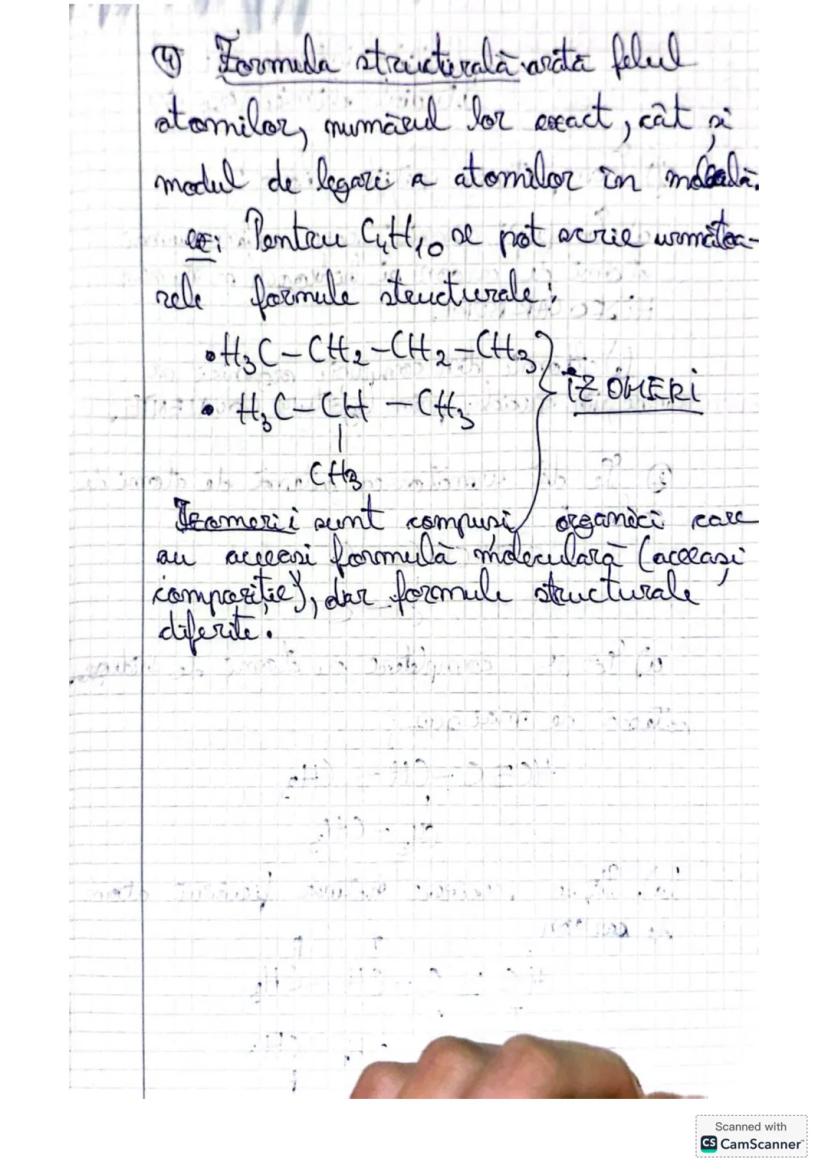 ④ Formula structurală arată felul
atomilor, numărul lor exact, cât și
modul de legare a atomilor în moleculă.
ex: Pentru C4H10 se pot scrie următoa-
rele formule structurale:
• H3C – CH2 – CH2 – CH3
• H3C – CH – CH3
|
CH3
IZOMERI
Izomerii sunt compuși organici care
au aceeasi formulă moleculară (aceeași
compoziție), dar formule structurale
diferite.
Scanned with
CS CamScanner